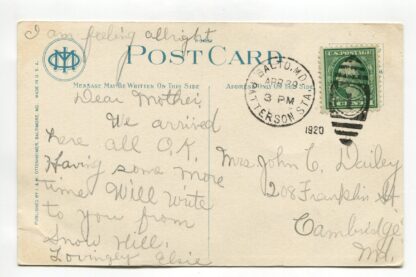 I am feeling allright
POST CARD
MESSAGE MAY BE WRITTEN ON THIS SIDE
ADDRESS ONLY ON THIS SIDE
MADE IN U.S.A.
PUBLISHED BY I. & M. OTTENHEIMER, BALTIMORE, MD.
Dear Mother,
We arrived
here all O.K.
Having some more
time Will write
to you from
Snow Hill.
Lovingly Elsie
BALTO., MD.
APR 29
3 PM
PATTERSON STA.
1920
U.S. POSTAGE
1 CENT 1
Mrs John C. Dailey
208 Franklin St
Cambridge
Md.